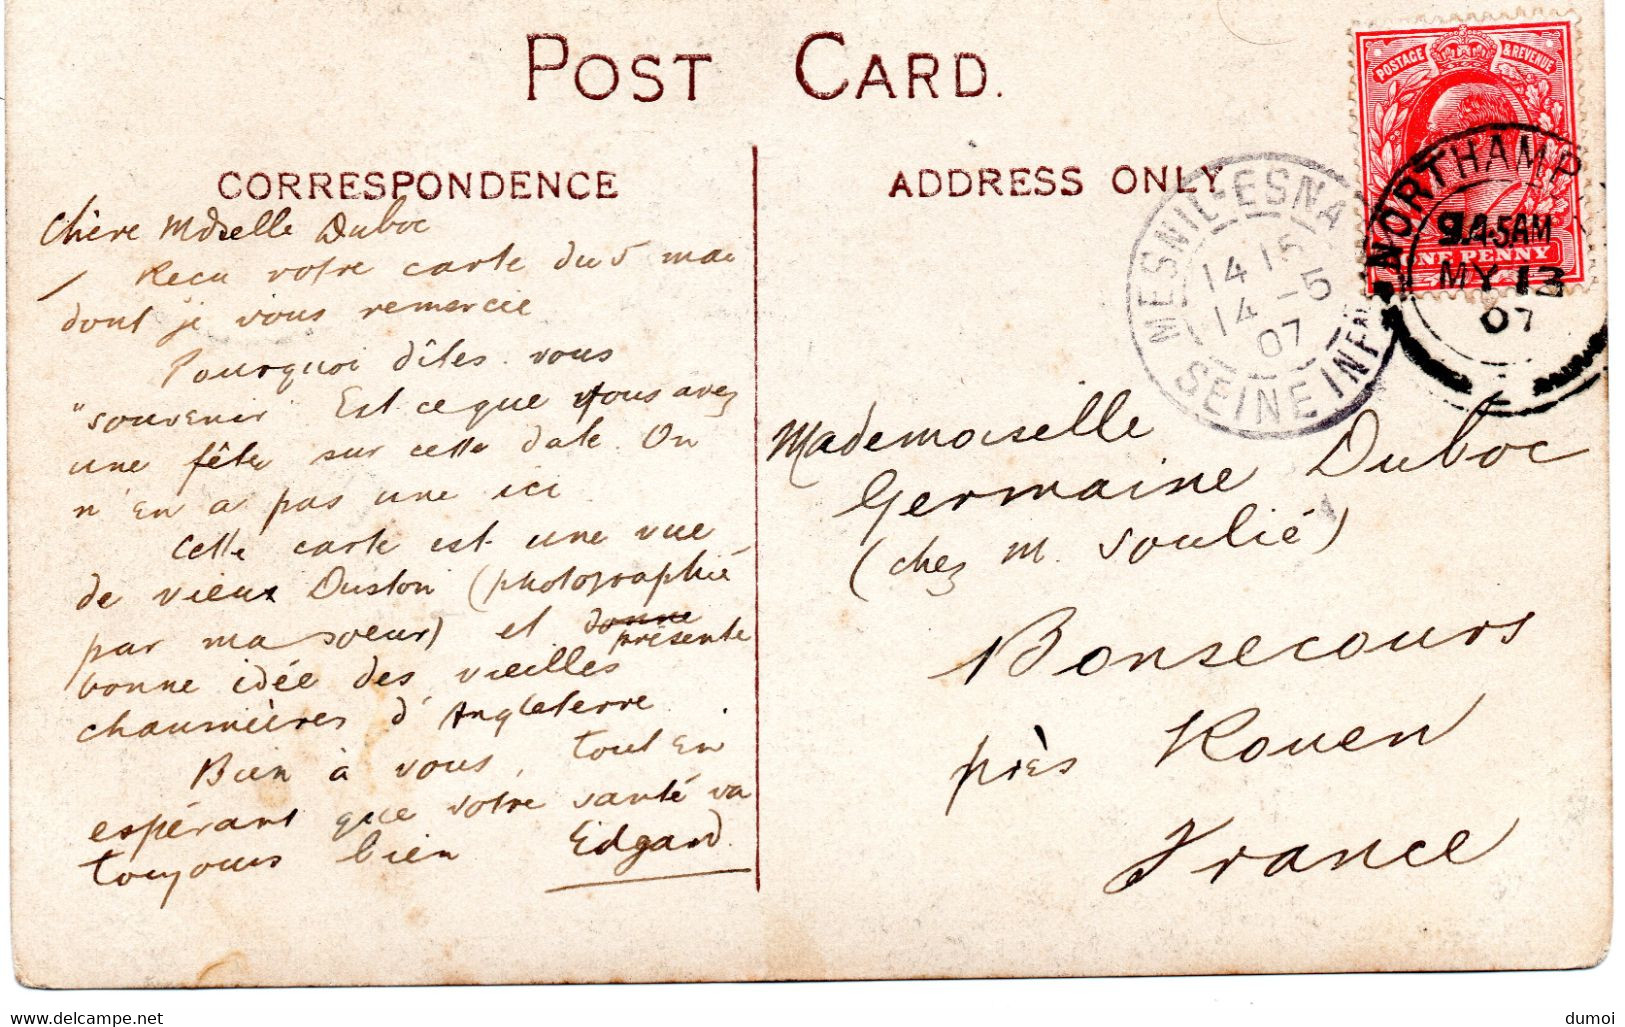 POST CARD.
CORRESPONDENCE
ADDRESS ONLY
Chère Mdselle Duboc
Recu votre carte du 5 mai
dont je vous remercie
Pourquoi dîtes vous
"souvenir" Est ce que vous avez
une fête sur cette date. On
n'en a pas une ici
Cette carte est une vue
de vieux Duston (photographié
par ma soeur) et donne présente
bonne idée des vieilles
chaumières d'Angleterre.
Bien à vous, tout en
espérant que votre santé va
toujours bien Edgard.
Mademoiselle
Germaine Duboc
(chez M. Soulié)
Bonsecours
près Rouen
France
POSTAGE & REVENUE
ONE PENNY
NORTHAMP
9.45AM
MY 13
07
MESNIL-ESNA
14 15
14 -5
07
SEINE INFRE
delcampe.net
dumoi